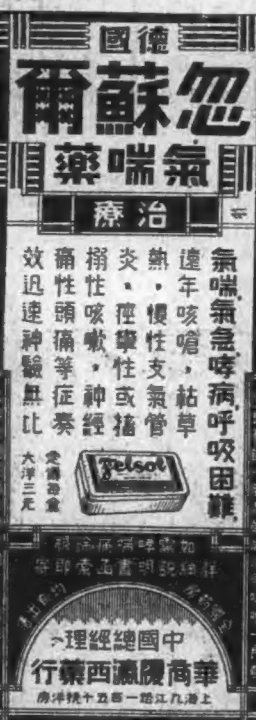 德國
忽蘇爾
氣喘藥
治療
氣喘,氣急,哮病,呼吸困難,
遠年咳嗆,枯草
熱,慢性支氣管
炎,痙攣性或搐
搦性咳嗽,神經
痛性頭痛等症奏
效迅速神驗無比
定價每盒
大洋三元
felsol
如需哮喘病論說
詳細說明書函索即寄
各藥房
均有出售
中國總經理
華商履瀛西藥行
上海九江路一百五十號洋房